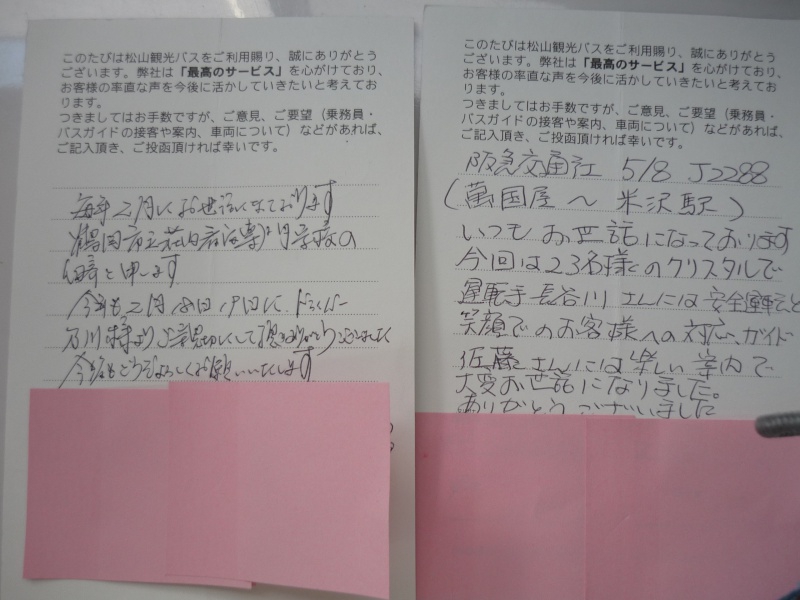 このたびは松山観光バスをご利用賜り、誠にありがとう
ございます。弊社は「最高のサービス」を心がけており、
お客様の率直な声を今後に活かしていきたいと考えてお
ります。
つきましてはお手数ですが、ご意見、ご要望（乗務員・
バスガイドの接客や案内、車両について）などがあれば、
ご記入頂き、ご投函頂ければ幸いです。
毎年2月にお世話になっております
鶴岡市立荘内看護専門学校の
と申します
今年も2月18日、19日に、ドライバー
石川様より ご親切にして頂きありがとうございました
今後もどうぞよろしくお願いいたします
このたびは松山観光バスをご利用賜り、誠にありがとう
ございます。弊社は「最高のサービス」を心がけており、
お客様の率直な声を今後に活かしていきたいと考えてお
ります。
つきましてはお手数ですが、ご意見、ご要望（乗務員・
バスガイドの接客や案内、車両について）などがあれば、
ご記入頂き、ご投函頂ければ幸いです。
阪急交通社 5/8 J2288
（萬国屋～米沢駅）
いつもお世話になっております
今回は23名様でのクリスタルで
運転手長谷川さんには安全運転と
笑顔でのお客様への対応、ガイド
佐藤さんには楽しい案内で
大変お世話になりました。
ありがとうございました